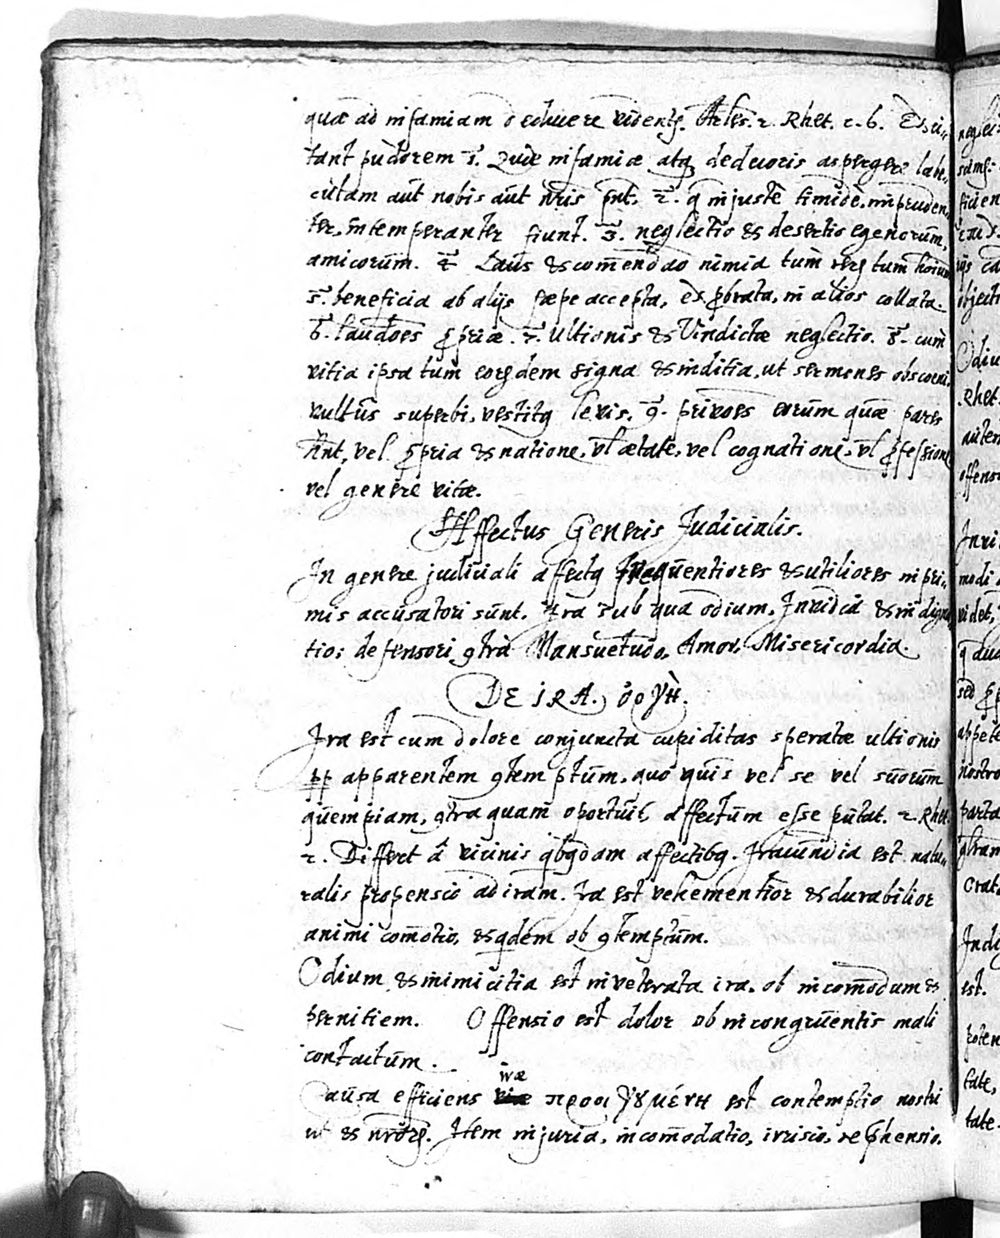 quæ ad infamiam deduere videntr. Artes. 2. Rhet. c. 6. Exci-
tant pudorem 1. Quæ infamiæ atq dedecoris aspergere labe-
culam aut nobis aut nris pnt. 2. q injuste timidè, impruden-
ter, intemperanter fiunt. 3. neglectio & desertio egenorum,
amicorum. 4. Laus & comendao nimia tum rerū tum hoium
5. beneficia ab alijs sæpe accepta, exprobrata, in alios collata.
6. laudões propriæ. 7. Ultionis & Vindictæ neglectio. 8. cum
vitia ipsa tum eorūdem signa & inditia, ut sermones obscoeni,
vultus superbi, vestitq levis. 9. privões eorum quæ pares
hnt, vel propria & natione, vl ætate, vel cognatione, vl professione
vel genere vitæ.
Affectus Generis Judicialis.
In genere judiciali affectq frequentiores & utiliores inpri-
mis accusatori sunt. Ira sub qua odium, Invidia & indigna
tio; defensori 9tra Mansuetudo, Amor, Misericordia.
DE IRA. ὀργὴ.
Ira est cum dolore conjuncta cupiditas speratæ ultionis
pp apparentem 9temptum, quo quis vel se vel suorum
quempiam, 9tra quam oportuit, affectum esse putat. 2. Rhet.
2. Differt â vicinis qbqdam affectibq. Iracundia est natu-
ralis propensio ad iram. Ira est vehementior & durabilior
animi comotio, & qdem ob 9temptum.
Odium & inimicitia est inveterata ira, ob incomodum &
pernitiem. Offensio est dolor ob incongruentis mali
contactum.
Causa efficiens iræ προηγȣμένη est contemptio nostri
ut & nrorū. Item injuria, incomodatio, irrisio, rephensio.